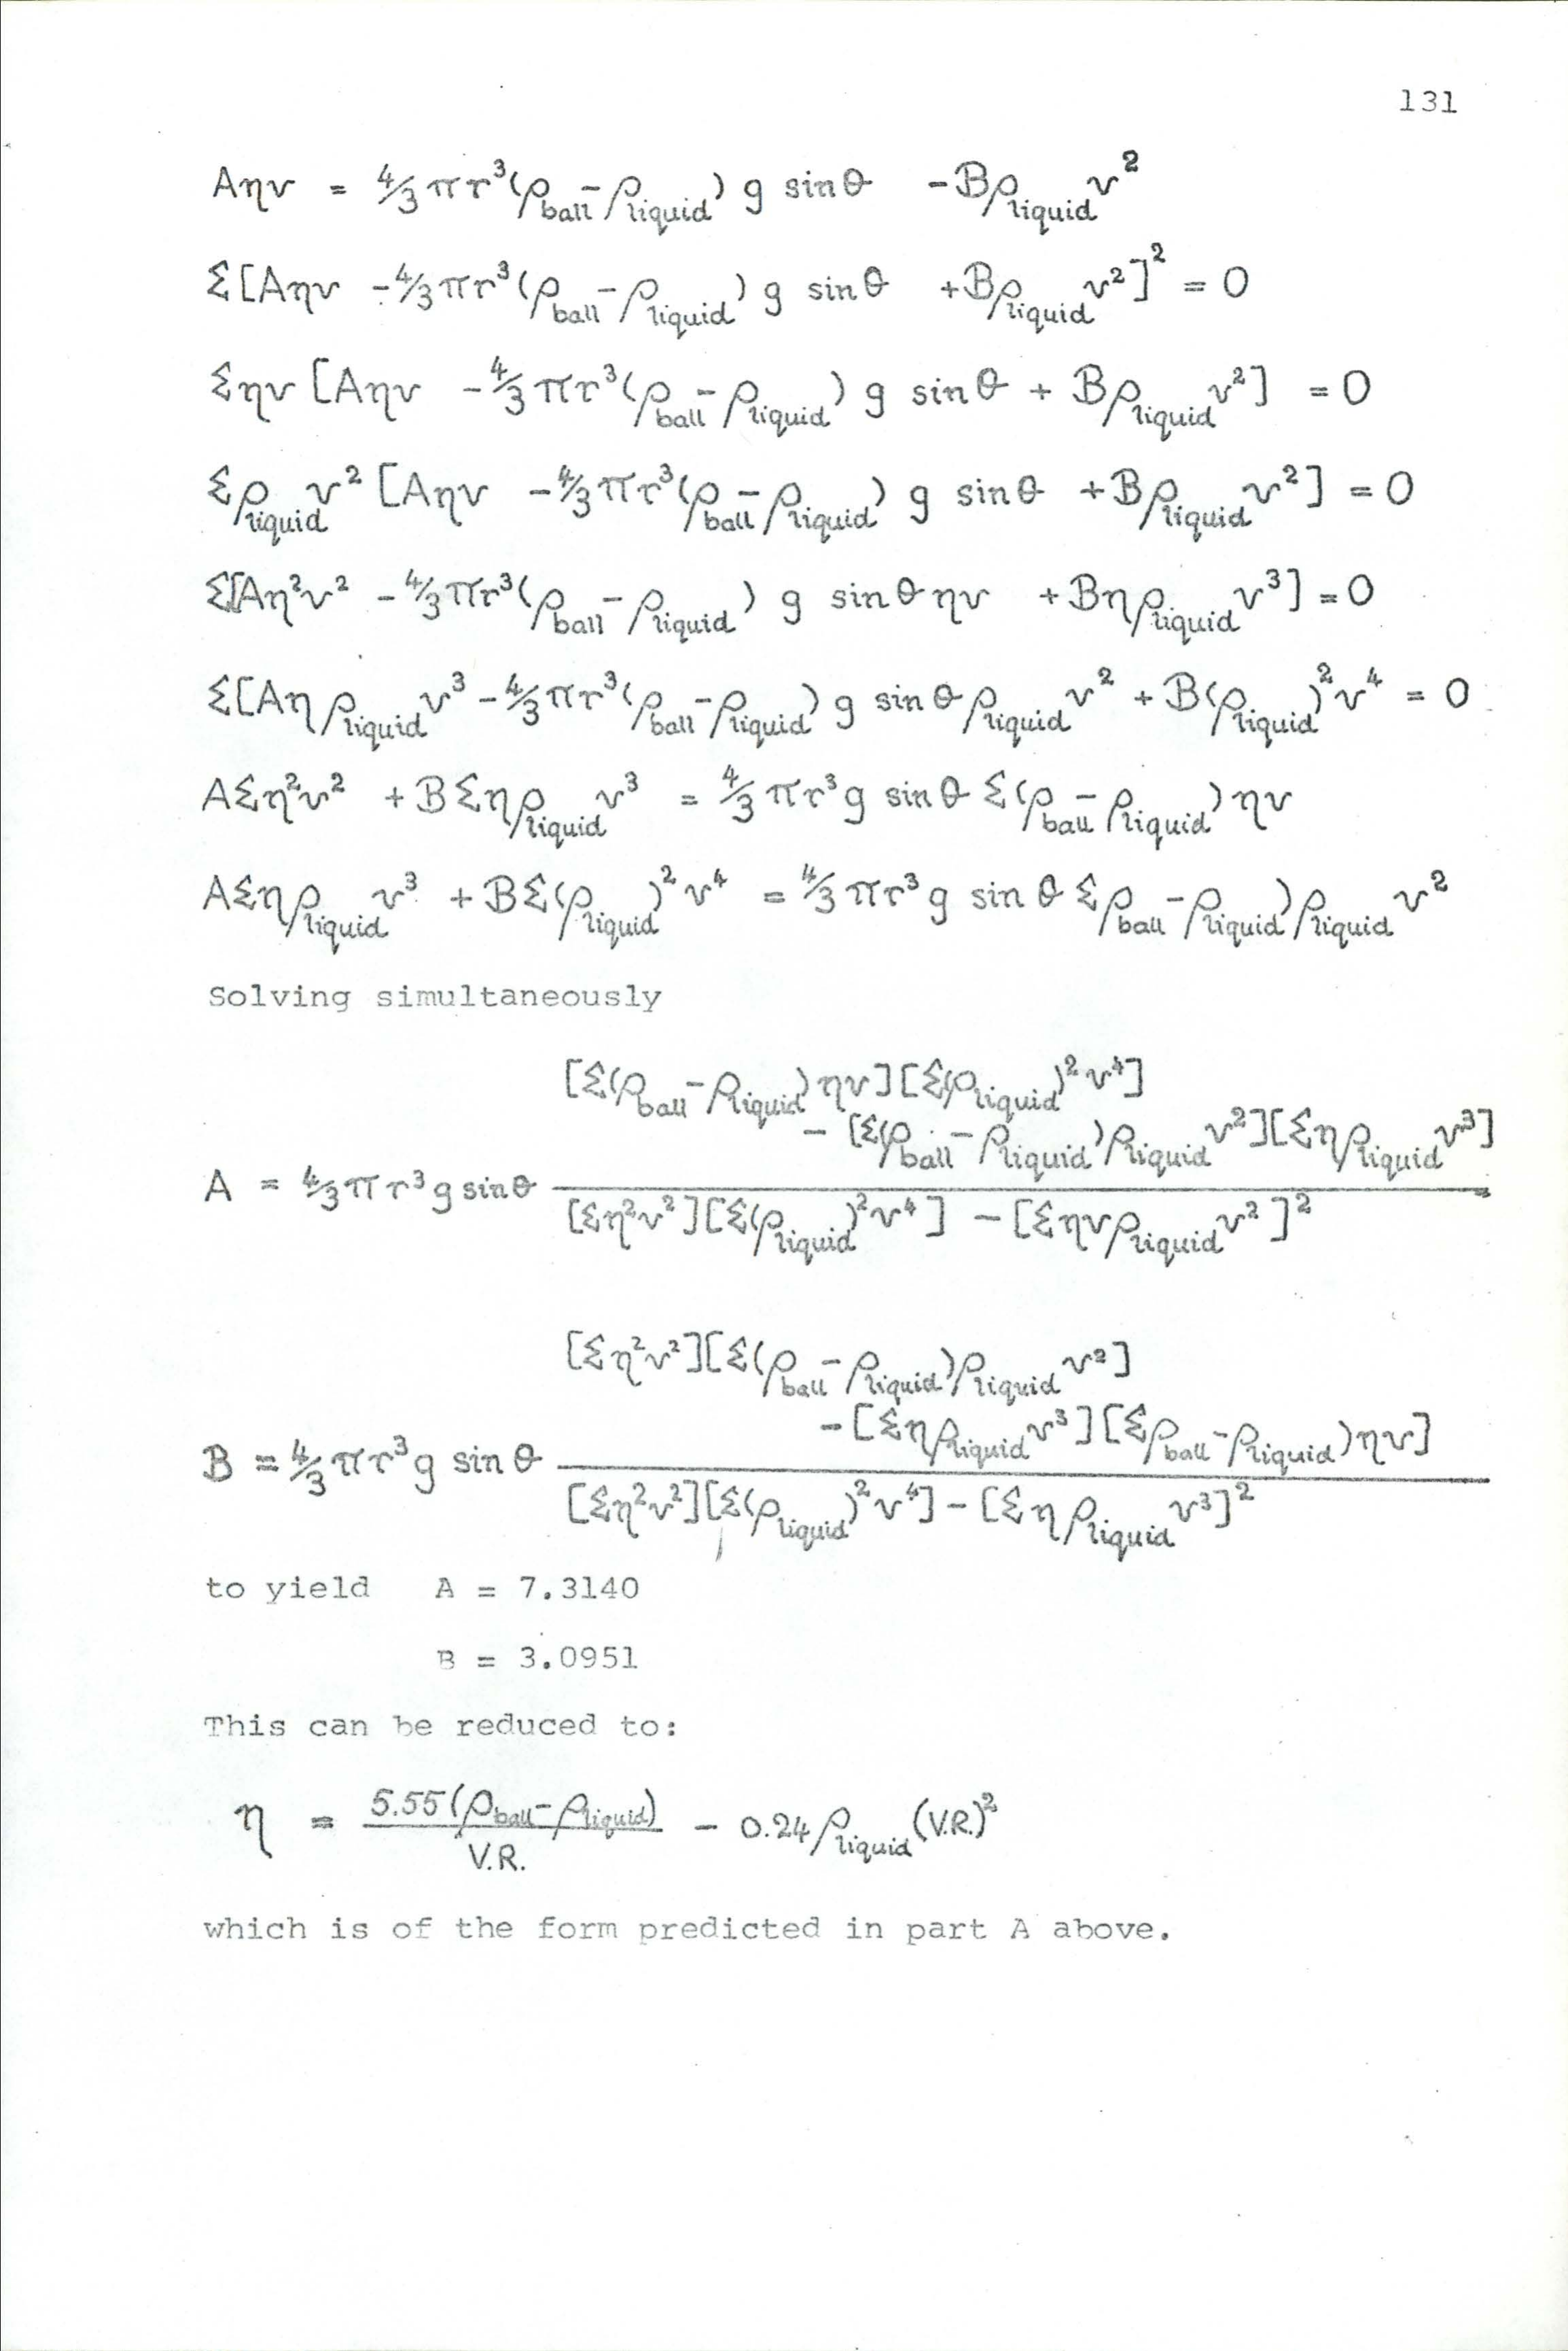 131
Aηv = 4/3 πr³(ρ_ball − ρ_liquid) g sinθ − Bρ_liquid v²
Σ[Aηv − 4/3 πr³(ρ_ball − ρ_liquid) g sinθ + Bρ_liquid v²]² = 0
Σηv [Aηv − 4/3 πr³(ρ_ball − ρ_liquid) g sinθ + Bρ_liquid v²] = 0
Σρ_liquid v² [Aηv − 4/3 πr³(ρ_ball − ρ_liquid) g sinθ + Bρ_liquid v²] = 0
Σ[Aη²v² − 4/3 πr³(ρ_ball − ρ_liquid) g sinθ ηv + Bηρ_liquid v³] = 0
Σ[Aηρ_liquid v³ − 4/3 πr³(ρ_ball − ρ_liquid) g sinθ ρ_liquid v² + B(ρ_liquid)² v⁴ = 0
AΣη²v² + BΣηρ_liquid v³ = 4/3 πr³g sinθ Σ(ρ_ball − ρ_liquid) ηv
AΣηρ_liquid v³ + BΣ(ρ_liquid)² v⁴ = 4/3 πr³g sinθ Σρ_ball − ρ_liquid)ρ_liquid v²
Solving simultaneously
[Σ(ρ_ball − ρ_liquid) ηv][Σ(ρ_liquid)² v⁴]
− [Σ(ρ_ball − ρ_liquid)ρ_liquid v²][Σηρ_liquid v³]
A = 4/3 πr³g sinθ
[Ση²v²][Σ(ρ_liquid)² v⁴] − [Σηvρ_liquid v²]²
[Ση²v²][Σ(ρ_ball − ρ_liquid)ρ_liquid v²]
− [Σηρ_liquid v³][Σρ_ball − ρ_liquid)ηv]
B = 4/3 πr³g sinθ
[Ση²v²][Σ(ρ_liquid)² v⁴] − [Σηρ_liquid v³]²
to yield A = 7.3140
B = 3.0951
This can be reduced to:
η = 5.55(ρ_ball − ρ_liquid) / V.R. − 0.24ρ_liquid (V.R.)²
which is of the form predicted in part A above.